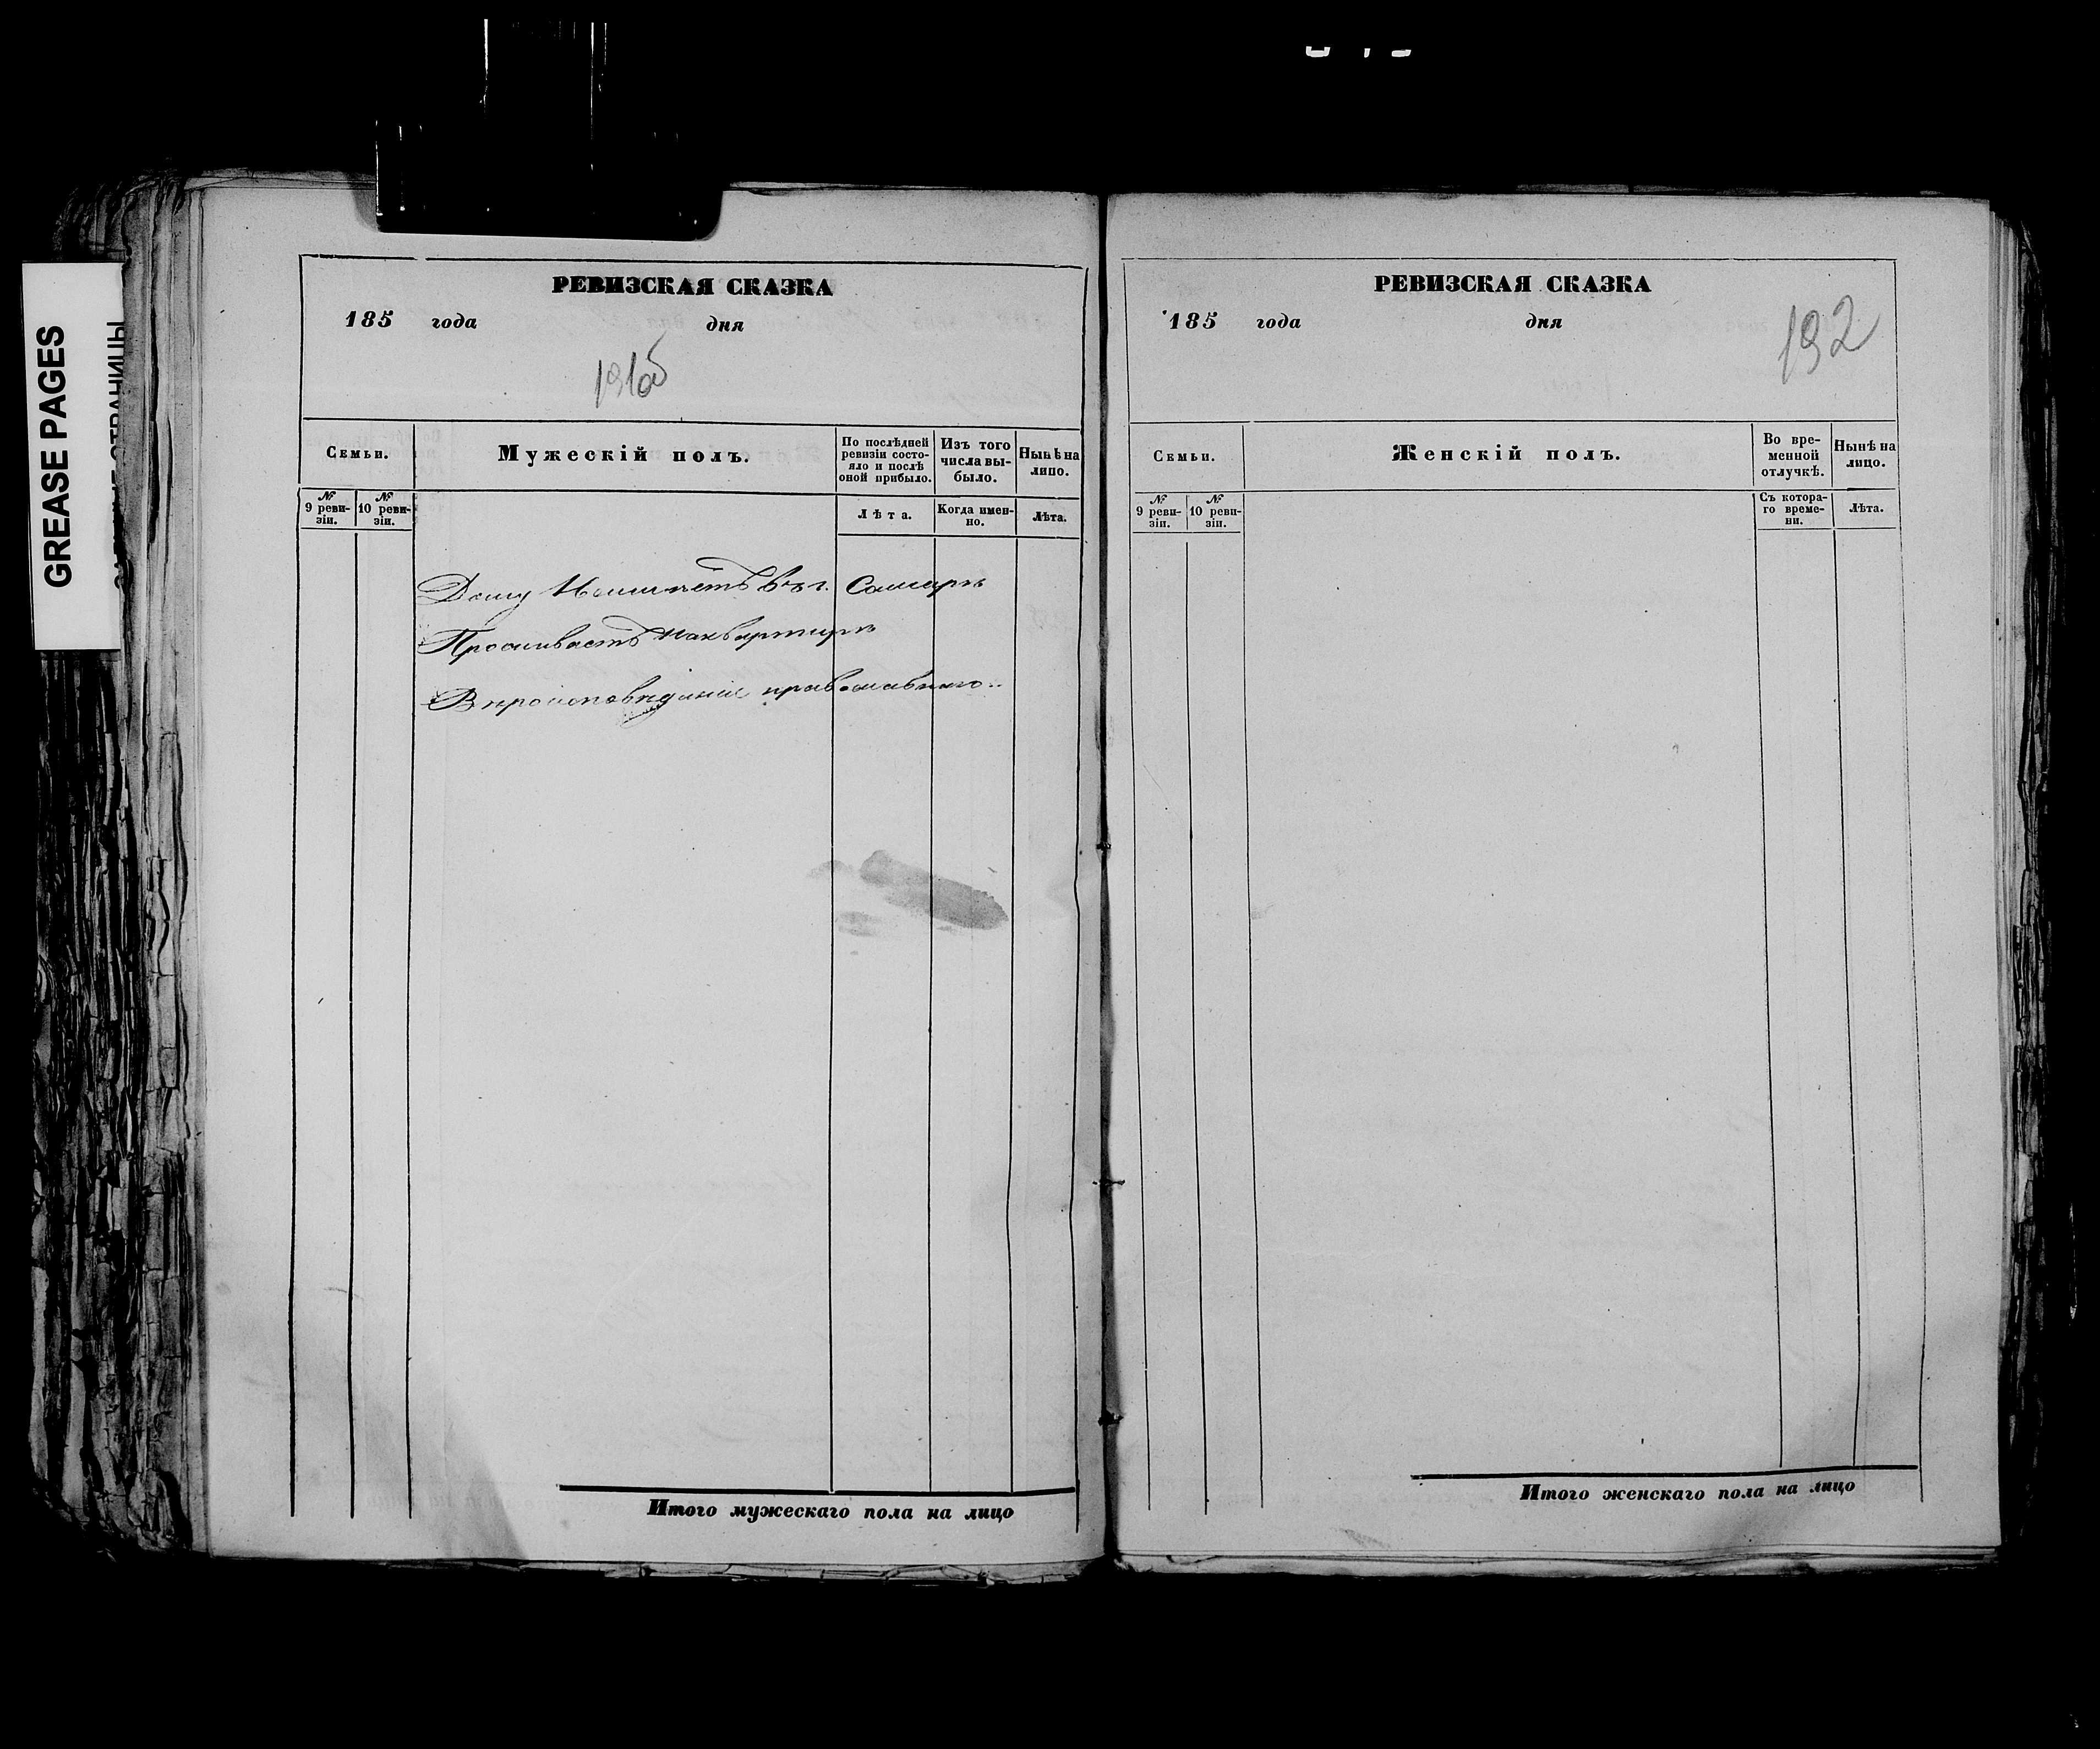 GREASE PAGES
РЕВИЗСКАЯ СКАЗКА
185 года дня
191об
Семьи.
Мужескій полъ.
По послѣдней ревизіи состояло и послѣ оной прибыло.
Изъ того числа выбыло.
Нынѣ на лицо.
№ 9 ревизіи.
№ 10 ревизіи.
Лѣта.
Когда именно.
Лѣта.
Дому Неимѣетъ въ г. Самарѣ
Проживаетъ наквартирѣ
Вѣроисповѣданія православнаго
Итого мужескаго пола на лицо
РЕВИЗСКАЯ СКАЗКА
185 года дня
192
Семьи.
Женскій полъ.
Во временной отлучкѣ.
Нынѣ на лицо.
№ 9 ревизіи.
№ 10 ревизіи.
Съ котораго времени.
Лѣта.
Итого женскаго пола на лицо